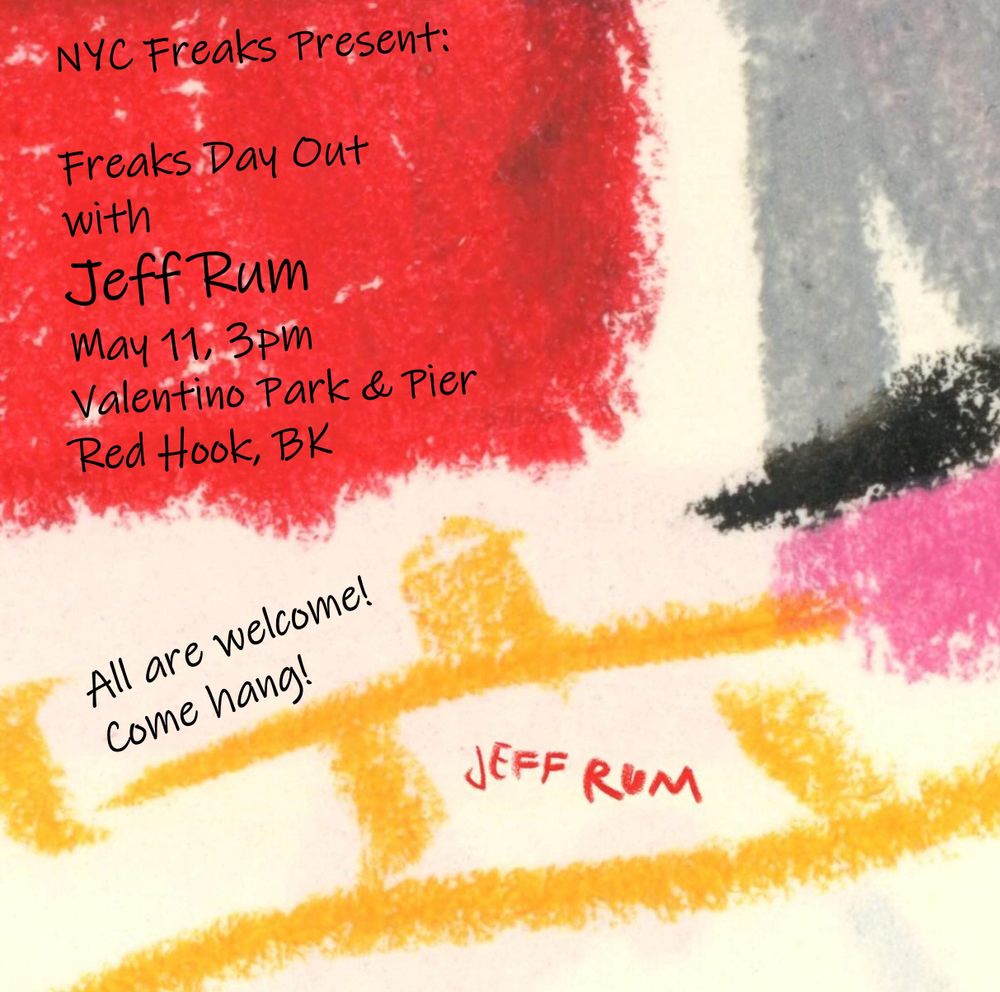 NYC Freaks Present:
Freaks Day Out
with
Jeff Rum
May 11, 3pm
Valentino Park & Pier
Red Hook, BK
All are welcome!
Come hang!
JEFF RUM